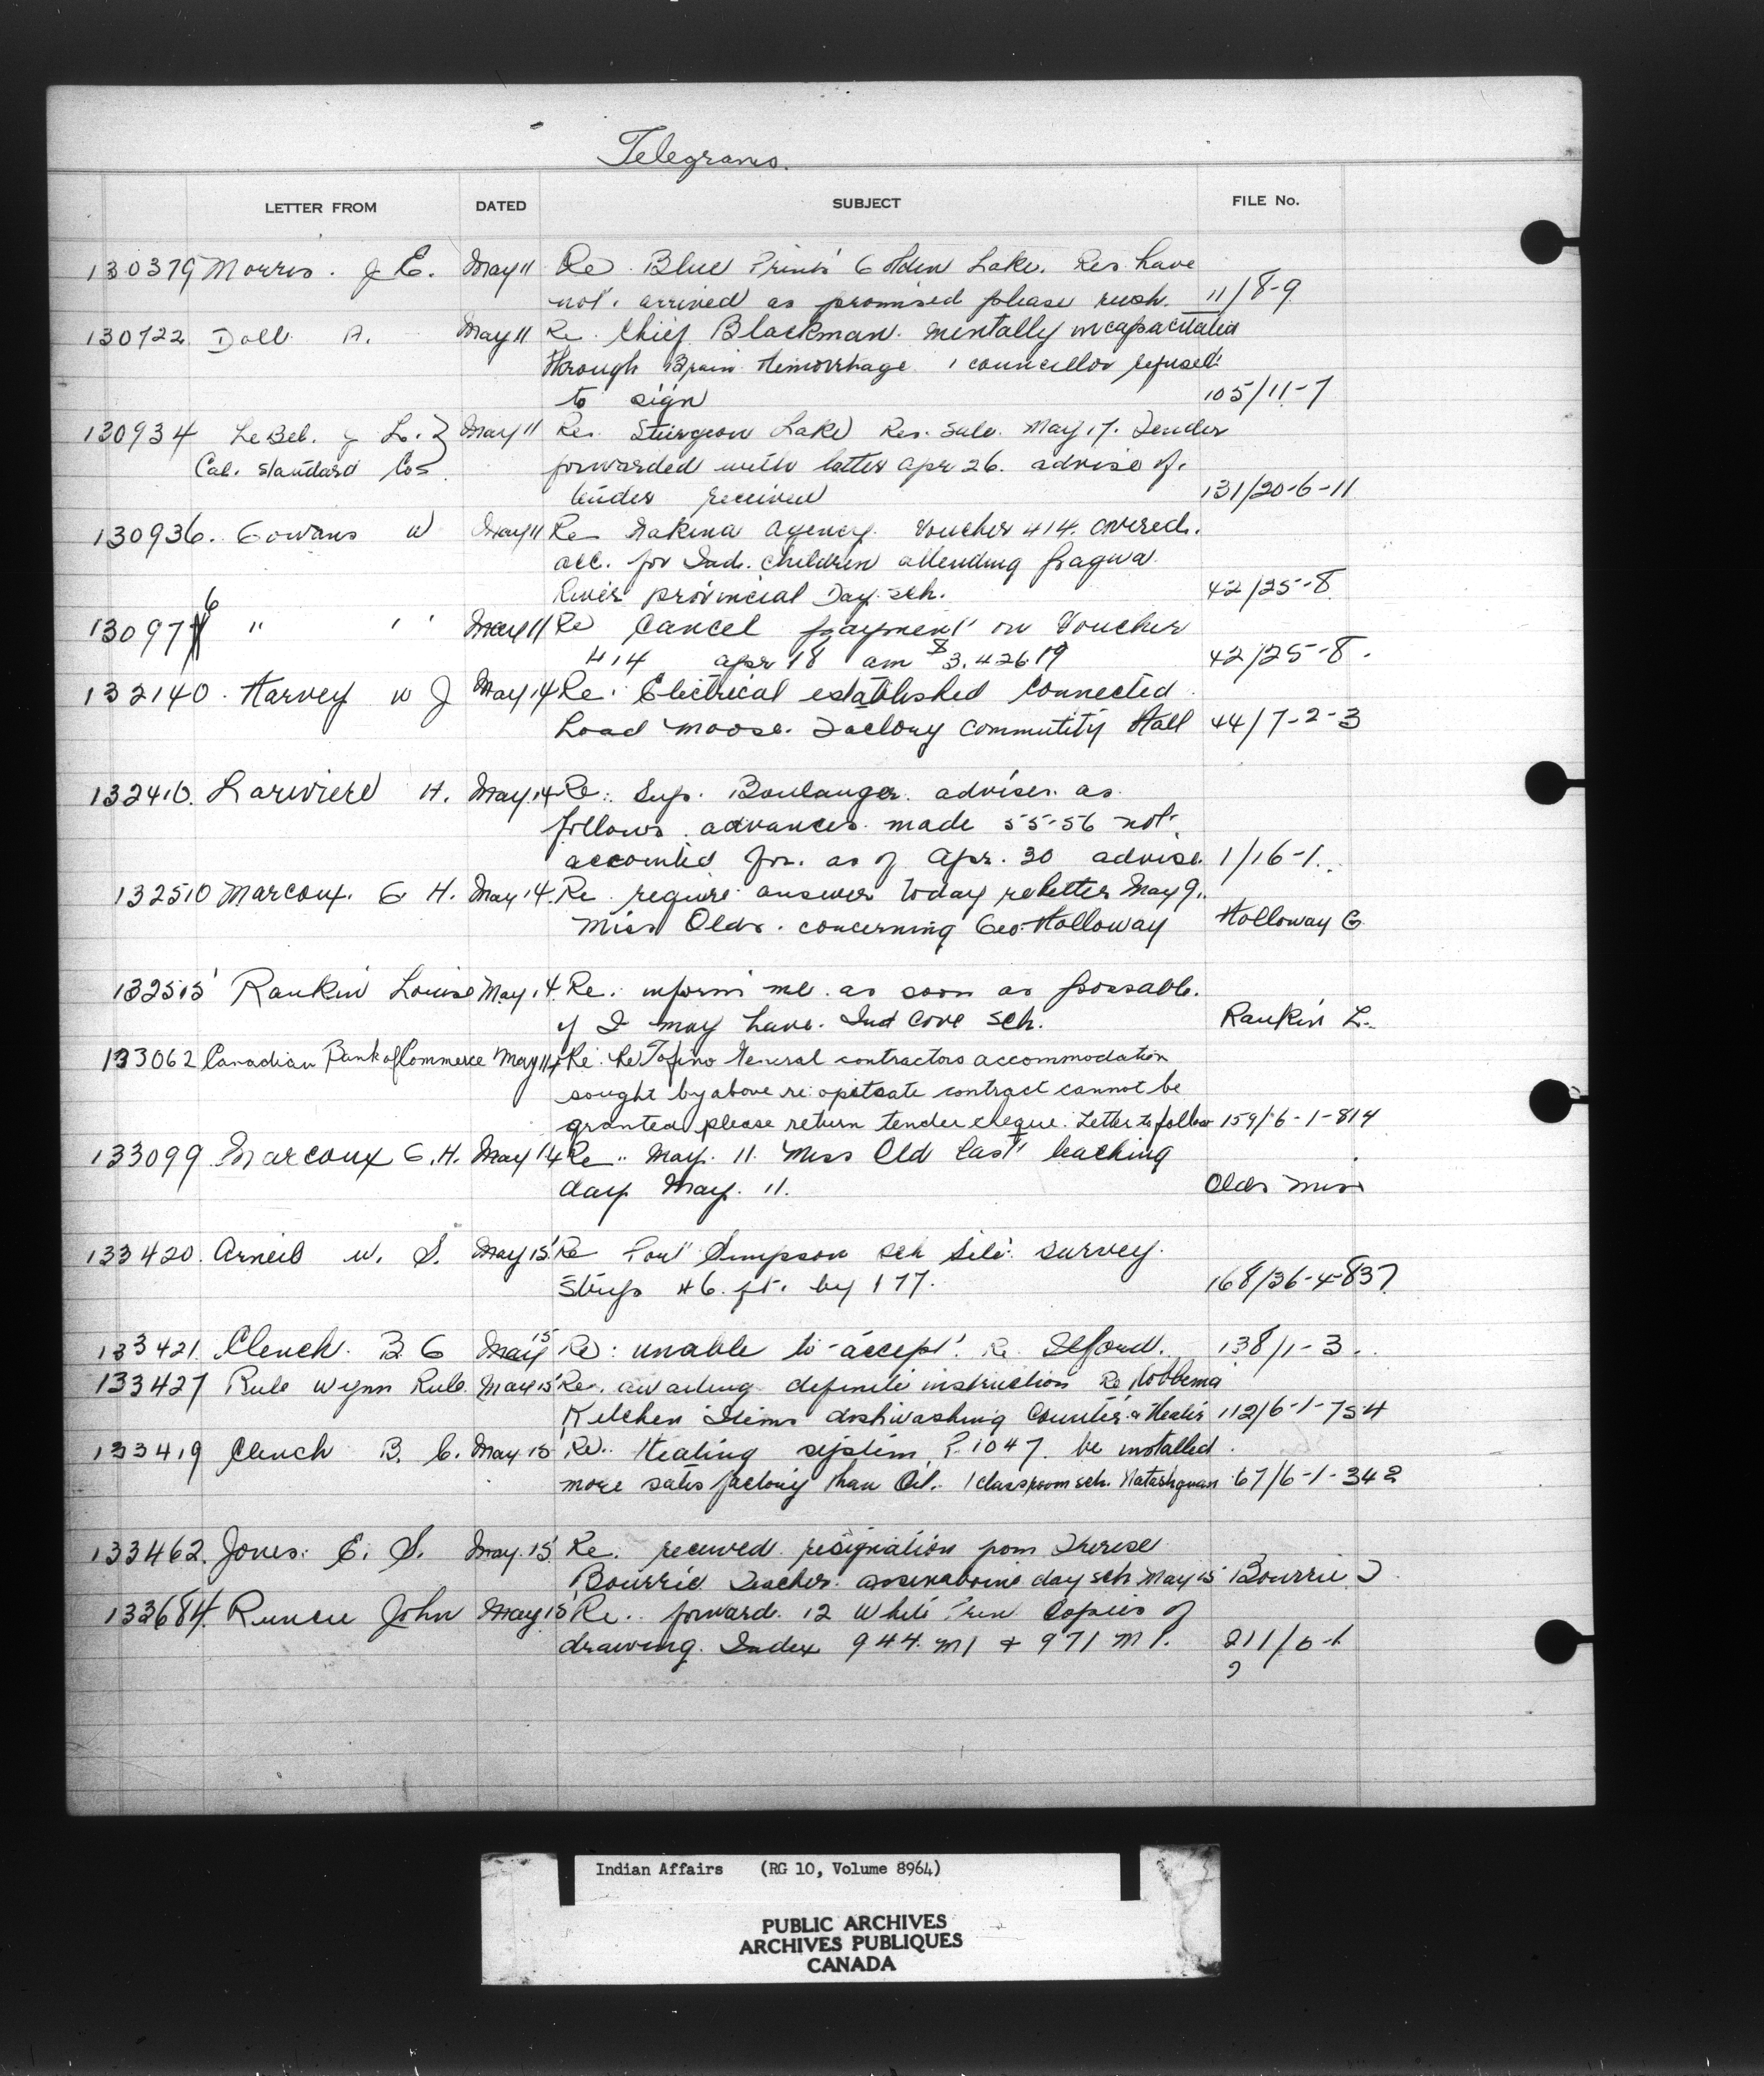 Telegrams.
LETTER FROM DATED SUBJECT FILE No.
130379 Morris. J E. May 11 Re Blue Prints Golden Lake. Res. have
not. arrived as promised please rush. 11/8-9
130722 Doll A. May 11 Re. Chief Blackman. mentally incapacitated
through Brain Hemorrhage 1 councillor refused
to sign 105/11-7
130934 LeBel. J L. } May 11 Re. Sturgeon Lake Res. sale. May 17. Tender
Cal. Standard Co forwarded with letter Apr 26. advise of.
tender received 131/20-6-11
130936. Gowans W May 11 Re Nakina Agency. Voucher 414. covered.
acc. for Ind. children attending Pagwa
River provincial Day. sch. 42/25-8
130976 " " " May 11 Re Cancel payment on Voucher
414 apr 18 am $3,426.19 42/25-8.
132140. Harvey W J May 14 Re: Electrical established connected
Load Moose. Factory Commutity Hall 44/7-2-3
132410. Lariviere H. May 14 Re: Sup. Boulanger. advises. as
follows. advances. made 55-56 not.
accounted for. as of Apr. 30 advise. 1/16-1.
132510 Marcoux. G H. May 14. Re. require answer today re letter May 9.
Miss Olds. concerning Geo. Holloway Holloway G.
132515 Rankin Louise May 14. Re. inform me. as soon as possable.
if I may have. Ind Cove Sch. Rankin L.
133062 Canadian Bank of Commerce May 14 Re: Re Tofino General contractors accommodation
sought by above re: opitsate contract cannot be
granted please return tender cheque. Letter to follow 159/6-1-814
133099 Marcoux G.H. May 14 Re.. May. 11. Miss Old last teaching
day May. 11. Olds Miss
133420. Arneil W. S. May 15. Re Port Simpson Sch Site. survey.
Strips 46. ft. by 177. 168/36-4-837
133421. Clench. B G May 15 Re: unable to accept. Re. 138/1-3.
133427 Rule Wynn Rule May 15 Re. awaiting definite instruction Re Hobbema
Kitchen Items dishwashing Counter & Heater 112/6-1-754
133419 Clench B. G. May 15 Re. Heating system P. 1047. be installed.
more satisfactory than Oil. 1 classroom sch. Natashquan 67/6-1-342
133462. Jones. E. S. May 15 Re. received resignation from Therese
Bourrie Teacher. day sch May 15 Bourrie T.
133684. Runcie John May 15 Re. forward. 12 White Prin Copies of
drawing. Index 944. M1 & 971 M1. 211/6-1
?
Indian Affairs (RG 10, Volume 8964)
PUBLIC ARCHIVES
ARCHIVES PUBLIQUES
CANADA